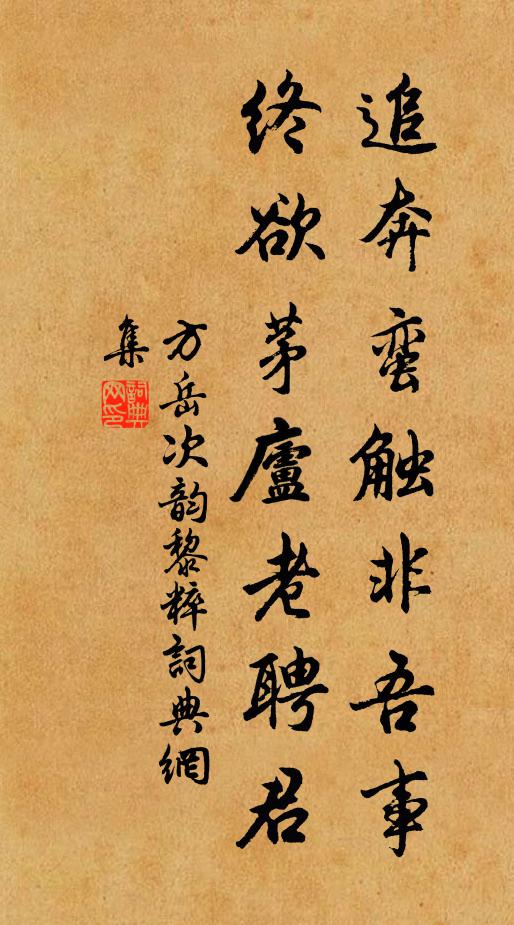 追奔蛮触非吾事
终欲茅廬老聘君
方岳次韵黎粹詞典網
集
詞典网印